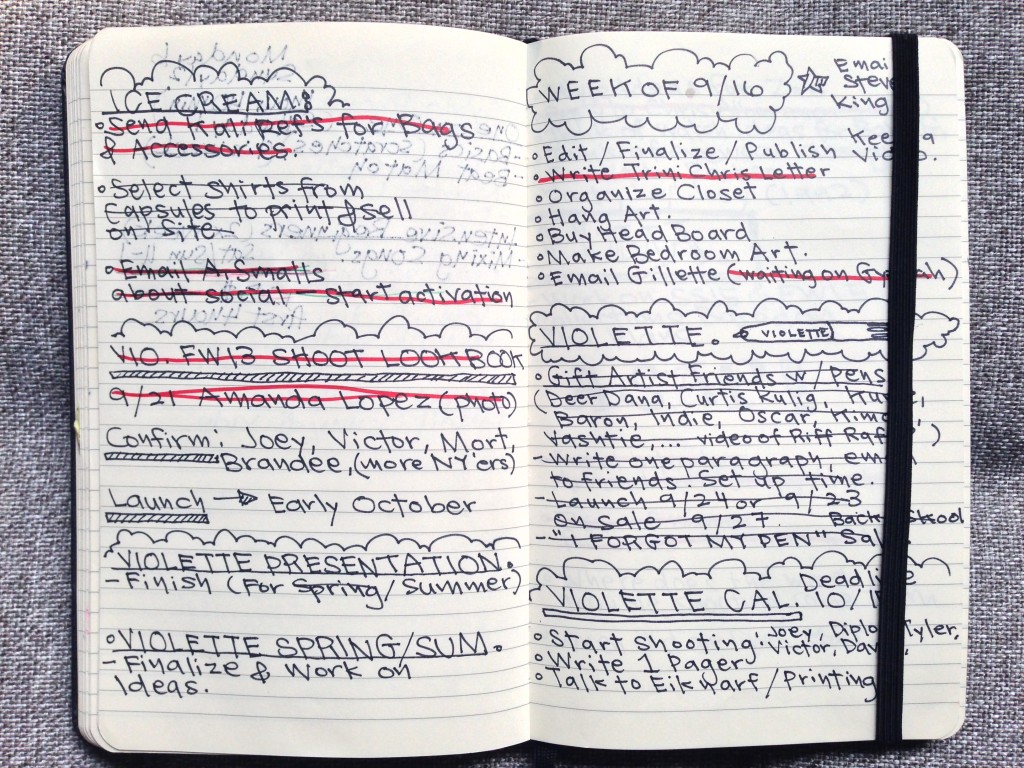 ICE CREAM:
Send Kali Ref's for Bags
& Accessories.
Select shirts from
Capsules to print & sell
on site
Email A. Smalls
about social start activation
VIO. FW13 SHOOT LOOKBOOK
9/21 Amanda Lopez (photo)
Confirm: Joey, Victor, Mort,
Brandee, (more NY'ers)
Launch → Early October
VIOLETTE PRESENTATION.
- Finish (For Spring/Summer)
VIOLETTE SPRING/SUM.
- Finalize & Work on
Ideas.
WEEK OF 9/16
Emai
Steve
King
Kee a
Video.
Edit / Finalize / Publish
Write Trini Chris Letter
Organize Closet
Hang Art.
Buy Head Board
Make Bedroom Art.
Email Gillette (waiting on
VIOLETTE.
VIOLETTE
Gift Artist Friends w/ pens
(Deer Dana, Curtis Kulig,
Baron, Indie, Oscar,
Vashtie,... video of Riff Raff )
- Write one paragraph, em
to friends. Set up time.
- Launch 9/24 or 9/23
on sale 9/27. Back School
- "I FORGOT MY PEN" Sal
Deadline
VIOLETTE CAL. 10/1
Start Shooting: Joey, Diplo, Tyler,
Victor, Da
Write 1 Pager
Talk to Eik Warf / Printing